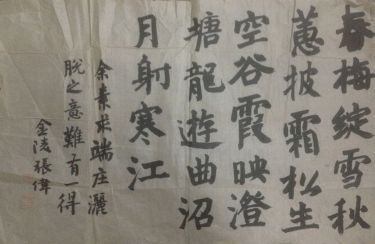 春梅綻雪秋
蕙披霜松生
空谷霞映澄
塘龍遊曲沼
月射寒江
余素求端庄灑
脫之意難有一得
金陵張偉